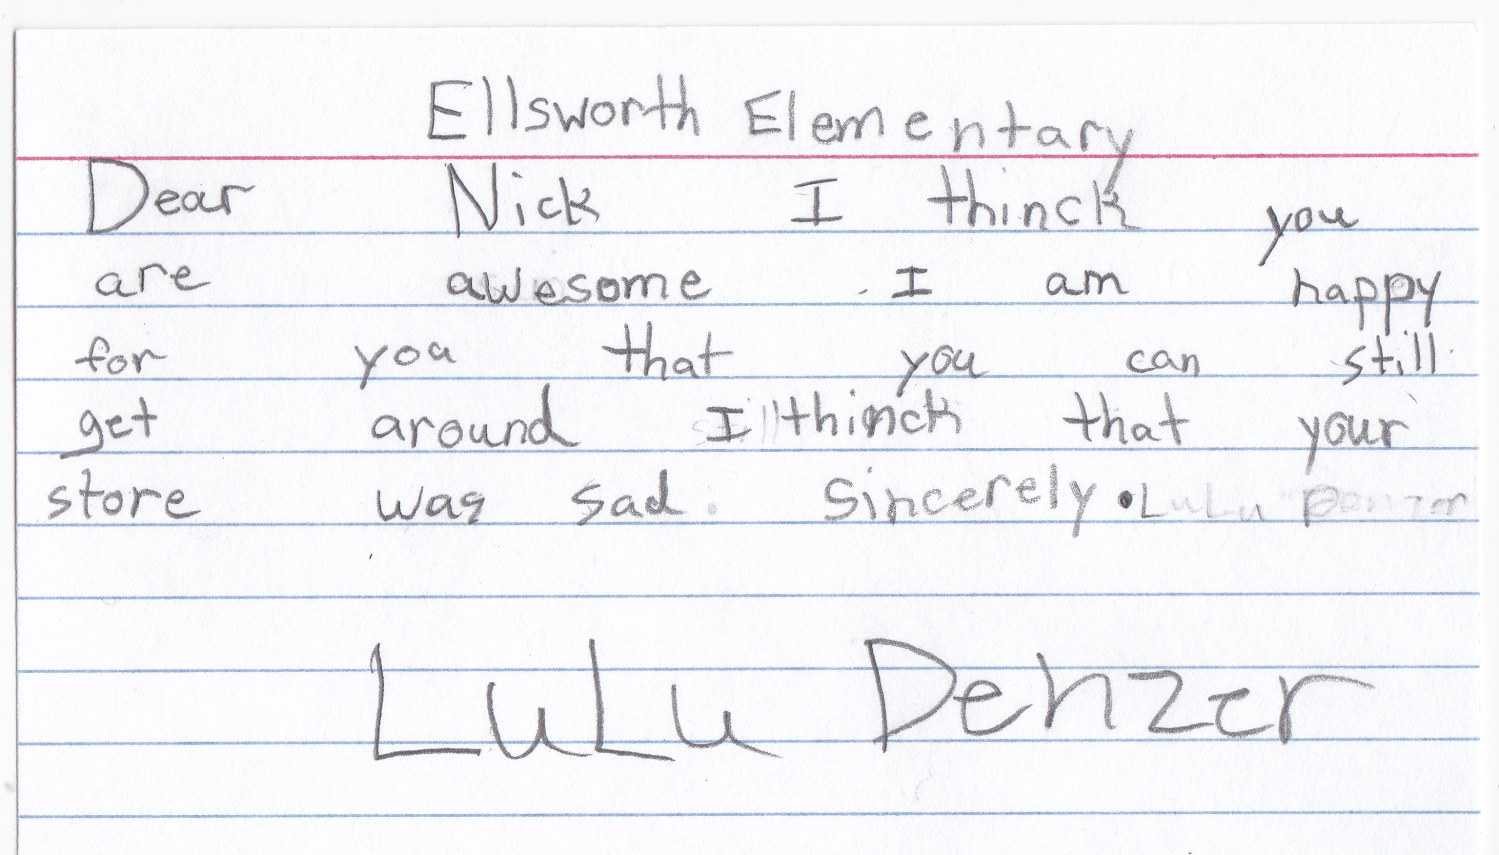 Ellsworth Elementary
Dear Nick I thinck you
are awesome . I am happy
for you that you can still
get around I thinck that your
store was sad. Sincerely . LuLu Denzer
LuLu Denzer